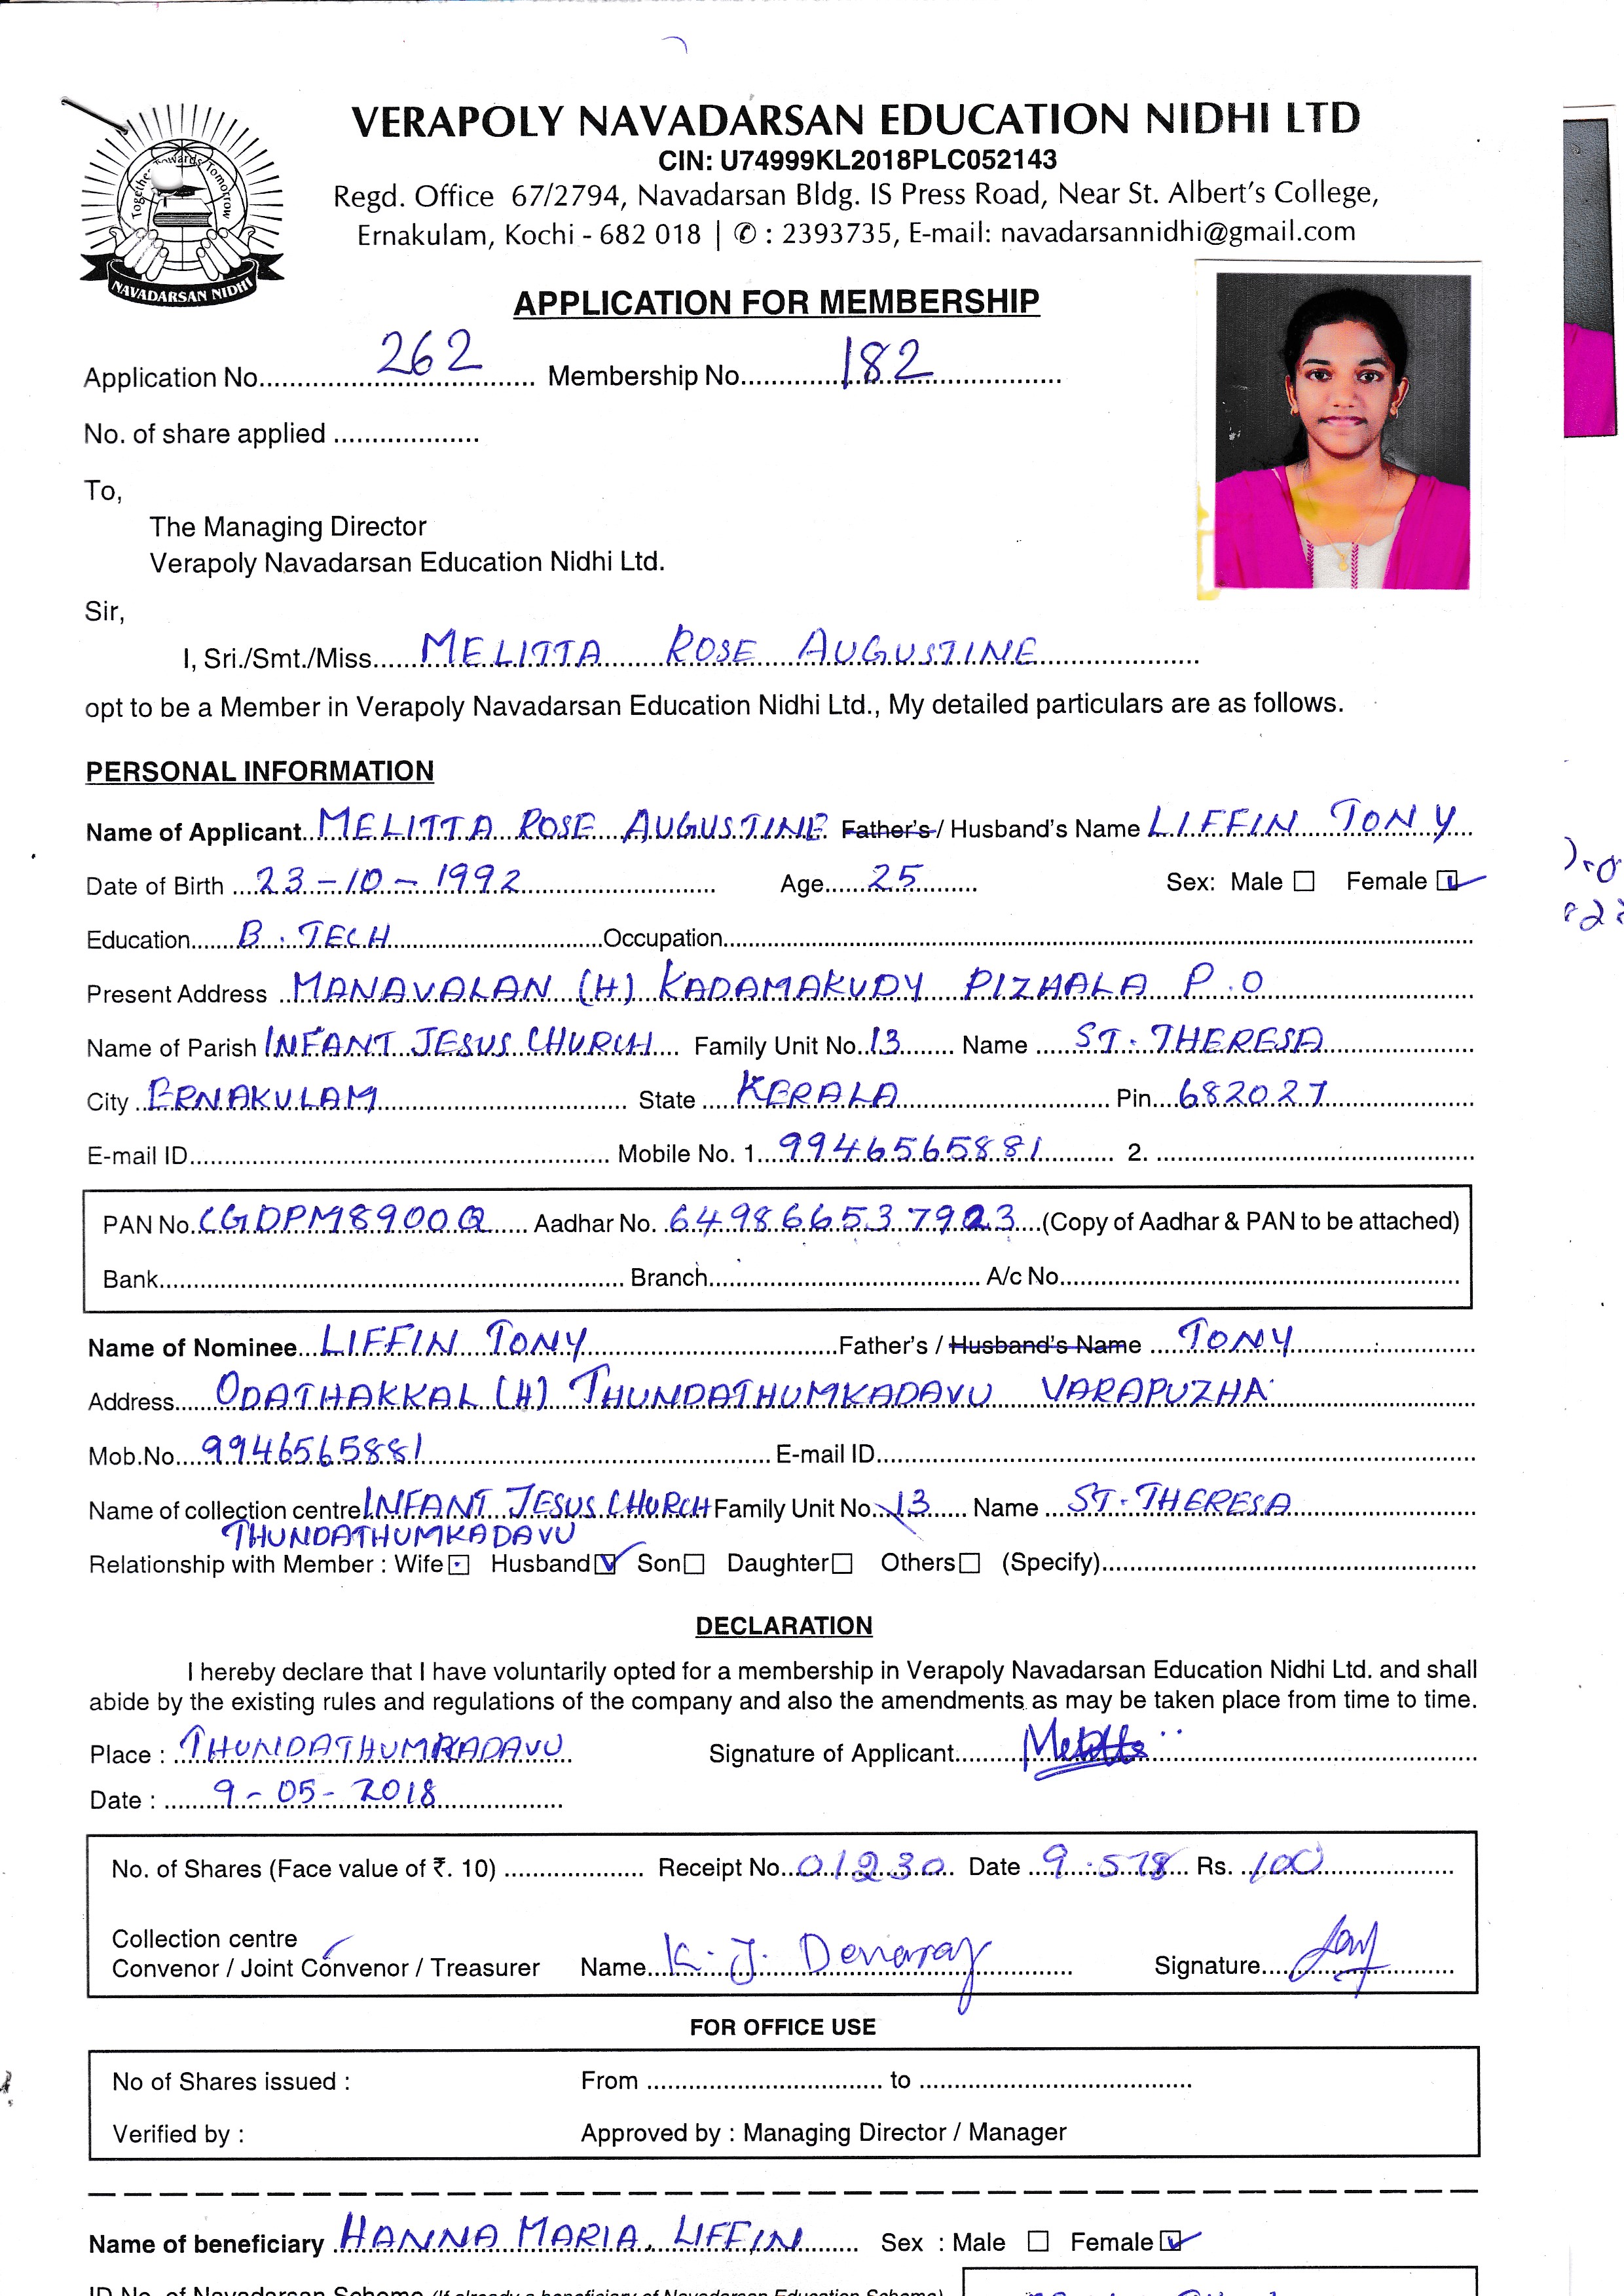 VERAPOLY NAVADARSAN EDUCATION NIDHI LTD
CIN: U74999KL2018PLC052143
Regd. Office 67/2794, Navadarsan Bldg. IS Press Road, Near St. Albert's College,
Ernakulam, Kochi - 682 018 | ✆ : 2393735, E-mail: navadarsannidhi@gmail.com
Together Towards Tomorrow
NAVADARSAN NIDHI
APPLICATION FOR MEMBERSHIP
Application No. 262 Membership No. 182
No. of share applied
To,
The Managing Director
Verapoly Navadarsan Education Nidhi Ltd.
Sir,
I, Sri./Smt./Miss. MELITTA ROSE AUGUSTINE
opt to be a Member in Verapoly Navadarsan Education Nidhi Ltd., My detailed particulars are as follows.
PERSONAL INFORMATION
Name of Applicant MELITTA ROSE AUGUSTINE Father's / Husband's Name LIFFIN TONY
Date of Birth 23-10-1992 Age 25 Sex: Male ☐ Female ☑
Education B.TECH Occupation
Present Address MANAVALAN (H) KADAMAKUDY PIZHALA P.O
Name of Parish INFANT JESUS CHURCH Family Unit No. 13 Name ST. THERESA
City ERNAKULAM State KERALA Pin 682027
E-mail ID Mobile No. 1. 9946565881 2.
PAN No. CGDPM8900Q Aadhar No. 649866537923 (Copy of Aadhar & PAN to be attached)
Bank Branch A/c No.
Name of Nominee LIFFIN TONY Father's / Husband's Name TONY
Address ODATHAKKAL (H) THUNDATHUMKADAVU VARAPUZHA
Mob.No. 9946565881 E-mail ID
Name of collection centre INFANT JESUS CHURCH Family Unit No. 13 Name ST. THERESA
THUNDATHUMKADAVU
Relationship with Member : Wife ☐ Husband ☑ Son ☐ Daughter ☐ Others ☐ (Specify)
DECLARATION
I hereby declare that I have voluntarily opted for a membership in Verapoly Navadarsan Education Nidhi Ltd. and shall
abide by the existing rules and regulations of the company and also the amendments as may be taken place from time to time.
Place : THUNDATHUMKADAVU Signature of Applicant Melitta
Date : 9-05-2018
No. of Shares (Face value of ₹. 10) Receipt No. 01230 Date 9.5.18 Rs. 100
Collection centre
Convenor / Joint Convenor / Treasurer Name K. J. Signature
FOR OFFICE USE
No of Shares issued : From to
Verified by : Approved by : Managing Director / Manager
Name of beneficiary HANNA MARIA LIFFIN Sex : Male ☐ Female ☑